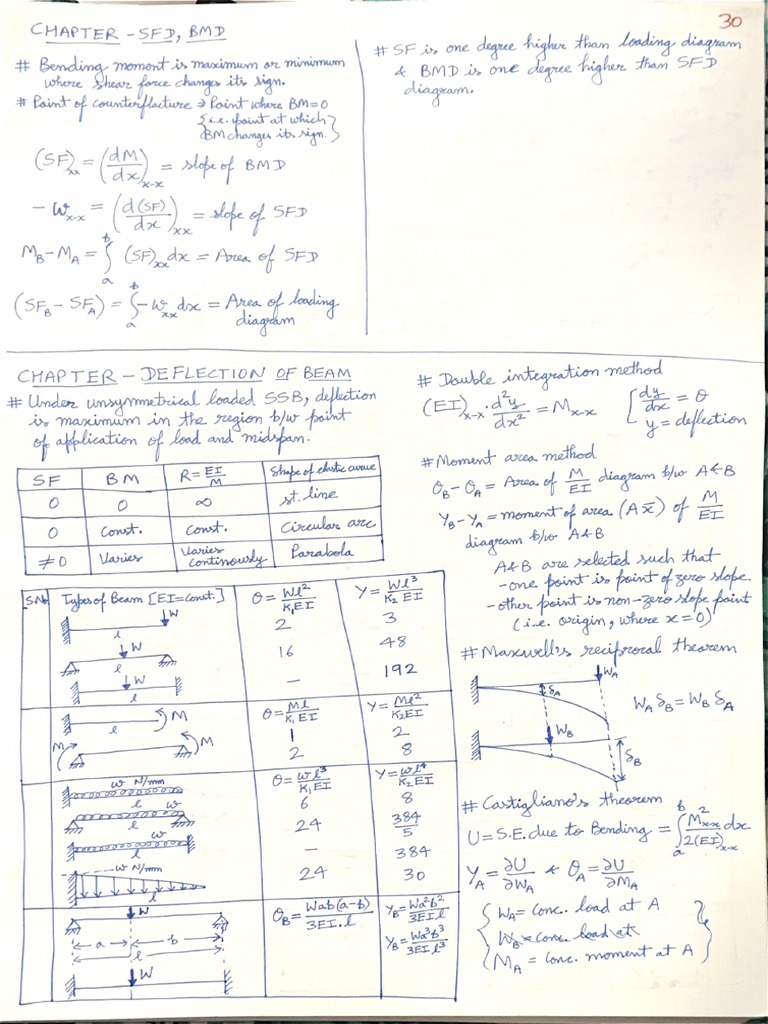 30
CHAPTER - SFD, BMD
# Bending moment is maximum or minimum
where shear force changes its sign.
# Point of counterflacture → Point where BM=0
{i.e. point at which
BM changes its sign.}
(SF)xx = (dM/dx)x-x = slope of BMD
- wx-x = (d(SF)/dx)xx = slope of SFD
MB - MA = ∫ab (SF)xx dx = Area of SFD
(SFB - SFA) = ∫ab -wxx dx = Area of loading
diagram
# SF is one degree higher than loading diagram
& BMD is one degree higher than SFD
diagram.
CHAPTER - DEFLECTION OF BEAM
# Under unsymmetrical loaded SSB, deflection
is maximum in the region b/w point
of application of load and midspan.
SF BM R = EI/M Shape of elastic curve
0 0 ∞ st. line
0 Const. Const. Circular arc
≠0 Varies Varies continously Parabola
S.No Types of Beam [EI = const.] θ = Wl²/K1EI Y = Wl³/K2EI
W l 2 3
W l 16 48
W l - 192
θ = Ml/K1EI Y = Ml²/K2EI
M l 1 2
M M 2 8
θ = wl³/K1EI Y = wl⁴/K2EI
w N/mm l 6 8
w l 24 384/5
w l - 384
w N/mm l 24 30
W a b l θB = Wab(a-b)/3EI.l YB = Wa²b²/3EI.l
W YB = Wa³b³/3EI l³
# Double integration method
(EI)x-x . d²y/dx² = Mx-x [dy/dx = θ
y = deflection
# Moment area method
θB - θA = Area of M/EI diagram b/w A&B
YB - YA = moment of area (Ax̄) of M/EI
diagram b/w A&B
A&B are selected such that
- one point is point of zero slope.
- other point is non-zero slope point
(i.e. origin, where x=0)
# Maxwell's reciprocal theorem
WA
δA
WB
δB
WA δB = WB δA
# Castigliano's theorem
U = S.E. due to Bending = ∫ab M²x-x dx/2(EI)x-x
YA = ∂U/∂WA & θA = ∂U/∂MA
{WA = conc. load at A
WB = conc. load at
MA = conc. moment at A}